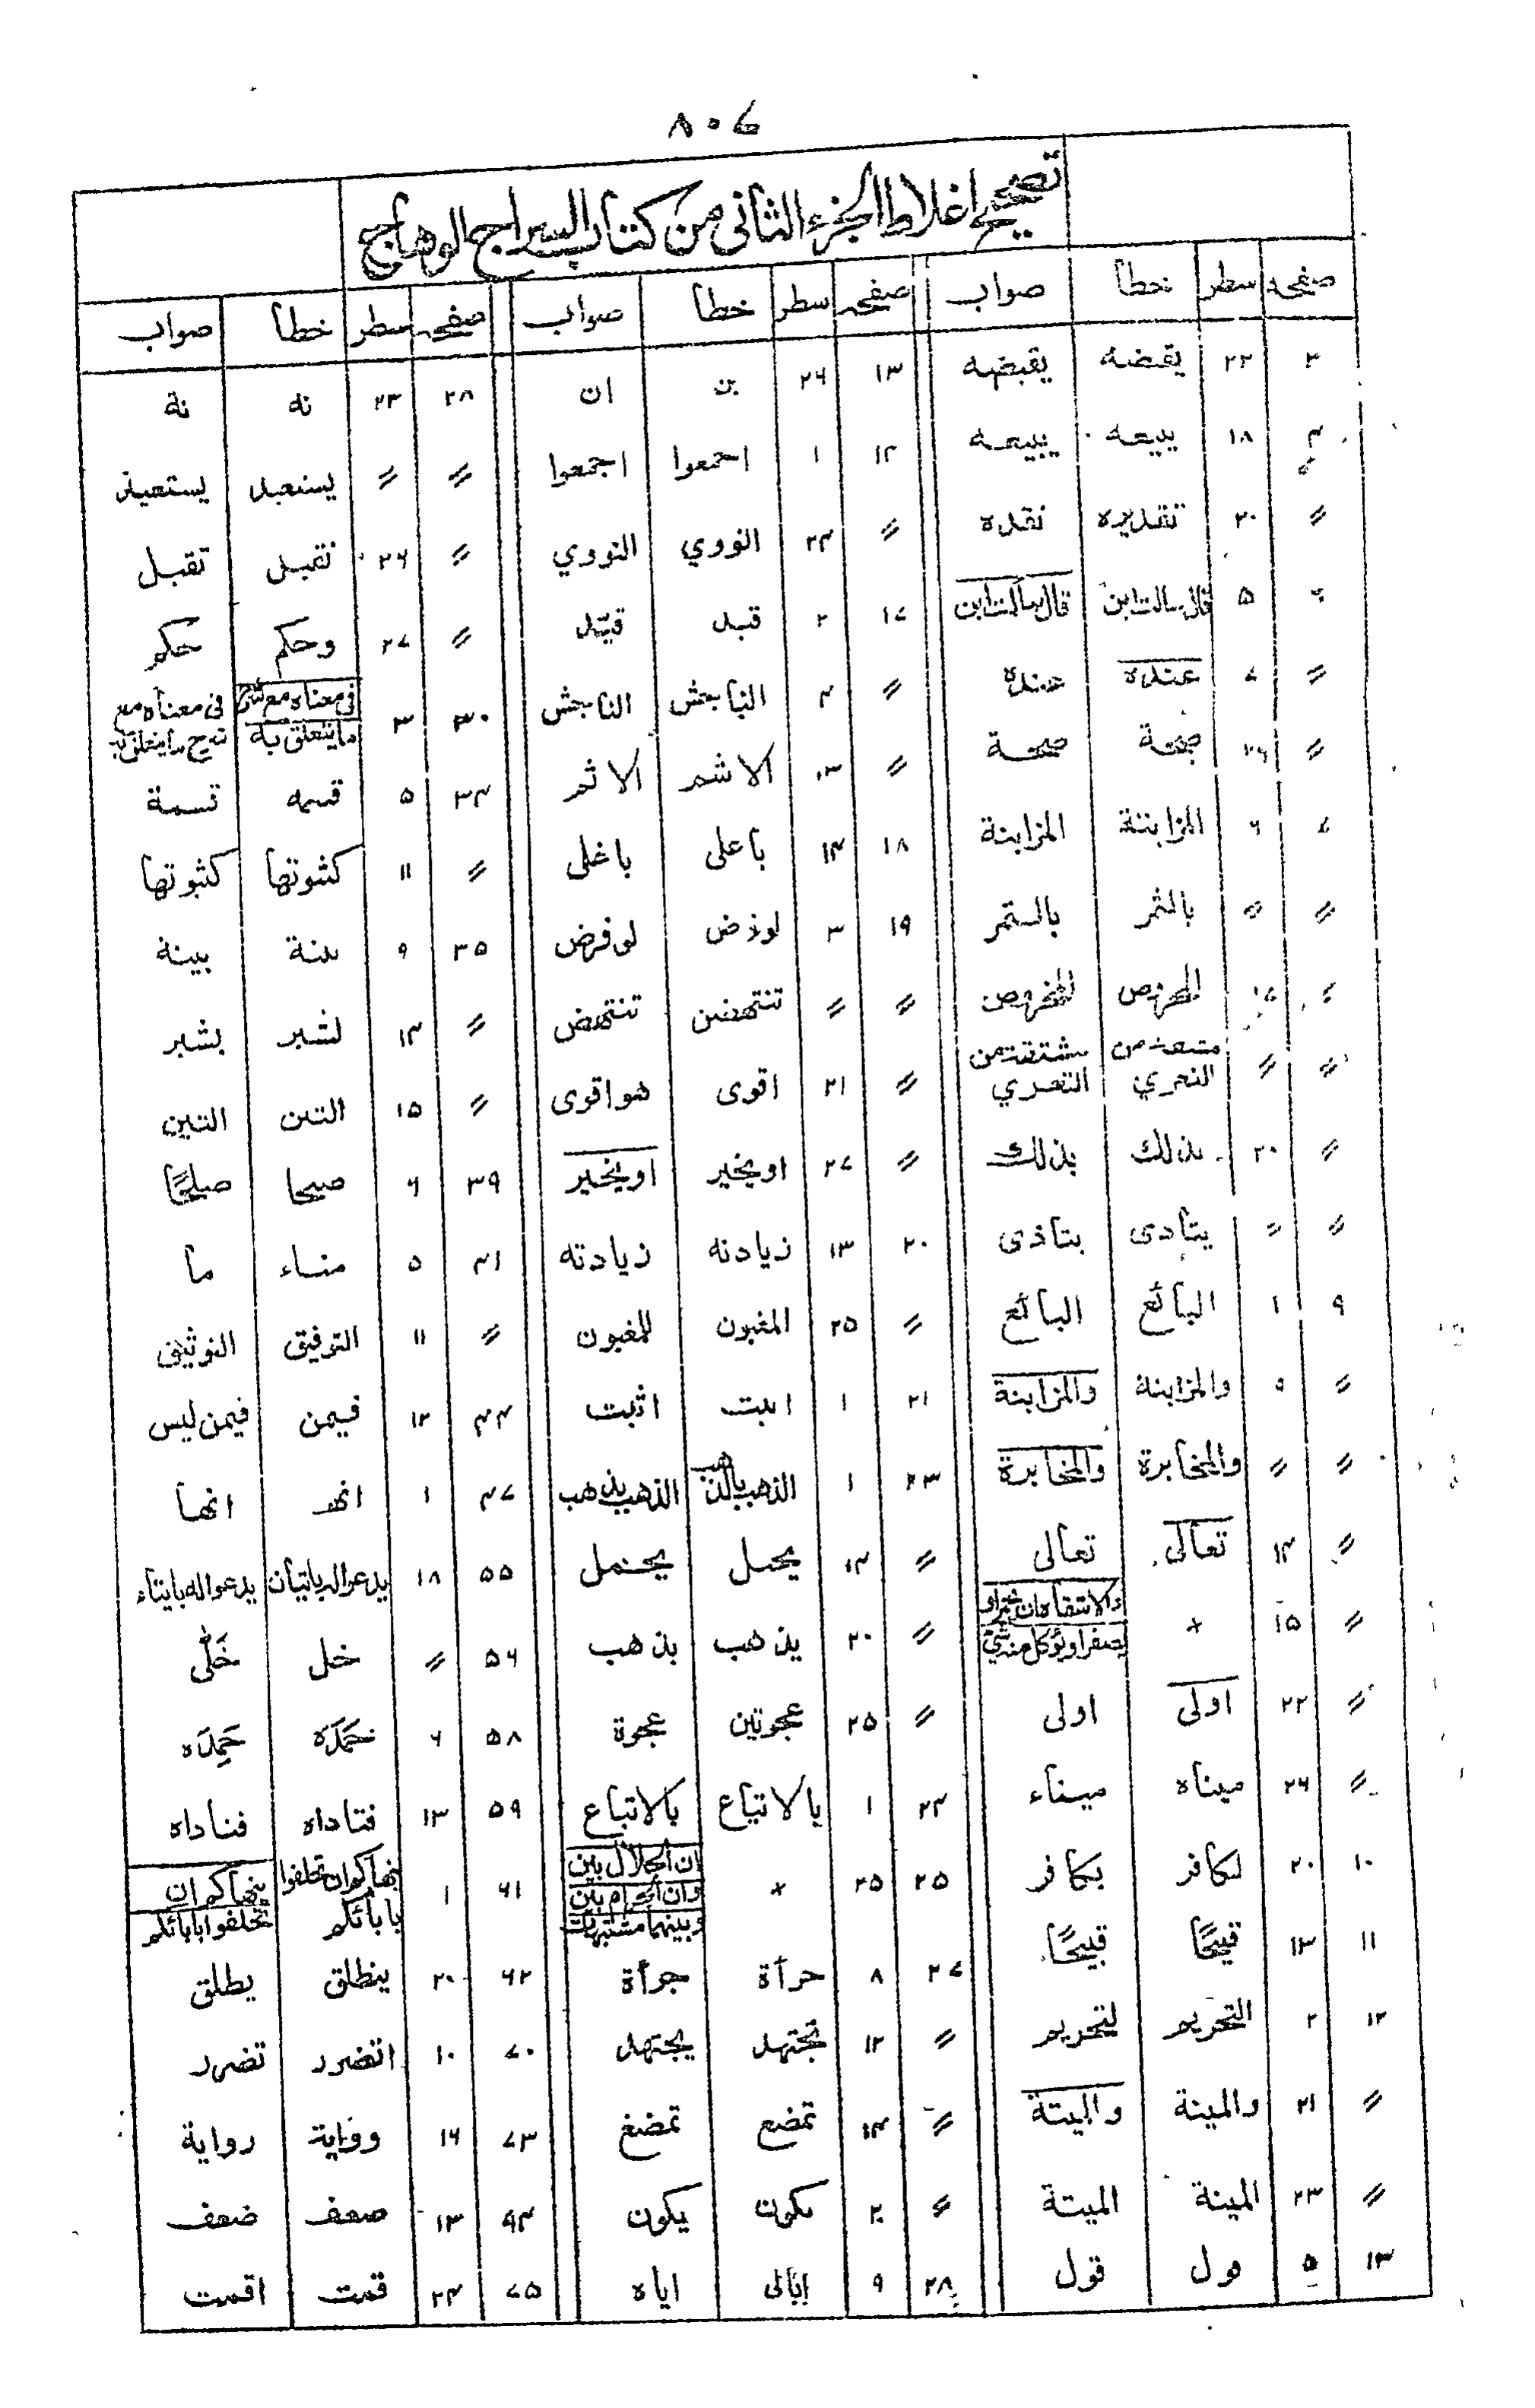 ٨٠٧
تصحيح اغلاط الجزء الثانى من كتاب السراج الوهاج
صفحه سطر خطأ صواب صفحه سطر خطأ صواب صفحه سطر خطأ صواب
٣ ٢٢ يقضه يقبضه ١٣ ٢٦ بن ان ٢٨ ٢٣ نه نة
٤ ١٨ يبعه يبيعه ١٤ ١ احمعوا اجمعوا 〃 〃 يسنعبد يستعيذ
〃 ٢٠ تقديره نقده 〃 ٢٤ النووي النووي 〃 ٢٦ نقبل تقبل
٥ قال سالت ابن قال سألت ابن ١٧ ٢ قبد قيّد 〃 ٢٧ وحكم حكم
〃 ٧ عنده عنده 〃 ٤ النابحش الناجش ٣٠ ٣ فى معناه مع شرح ما يتعلق به فى معناه مع شرح ما يتعلق به
〃 ٢٦ صحة صحة 〃 ١٣ الاشم الاثم ٣٤ ٥ قسمه قسمة
٧ ٦ المزابنة المزابنة ١٨ ١٤ باعلى باغلى 〃 ١١ كشوتها كثبوتها
〃 〃 بالثمر بالتمر ١٩ ٣ لوذض لو فرض ٣٥ ٩ بنة بينة
١٧ للخروص 〃 〃 تنتهضن تنتهض 〃 ١٤ لشبر بشبر
〃 〃 من التحري مشتقة من التحري 〃 ٢١ اقوى هو اقوى 〃 ١٥ التن التين
〃 ٢٠ بذلك بذلك 〃 ٢٧ او يخير او يخير ٣٩ ٦ صيحا صليحًا
〃 〃 يتأدى يتاذى ٢٠ ١٣ زيادنه زيادته ٤١ ٥ مناء ما
٩ ١ البائع البائع 〃 ٢٥ المغبون للمغبون 〃 ١١ التوفيق
〃 ٩ والمزابنه والمزابنة ٢١ ١ اببت اثبت ٤٤ ١٢ فيمن فيمن ليس
〃 〃 والمخابرة والمخابرة ٢٣ ١ الذهب بالذهب الذهب بذهب ٤٧ ١ انه انها
〃 ١٤ تعالى تعالى 〃 ١٤ يحمل يحتمل ٥٥ ١٨ يدعو اله باتيان يدعو اله بايتاء
〃 ١٥ × او يصفر او يؤكل منه شئ 〃 ٢٠ يذهب بذهب ٥٦ 〃 خل خَلّى
〃 ٢٢ اولى اولى 〃 ٢٥ عجوتين عجوة ٥٨ ٦ حَمَدَه حَمِدَه
〃 ٢٦ ميناه ميناء ٢٤ ١ بالاتياع بالاتباع ٥٩ ١٣ فتاداه فناداه
١٠ ٢٠ لكافر بكافر ٢٥ ٢٥ × ان الحلال بين وان الحرام بين وبينهما مشتبهات ٦١ ١ ينهاكم ان تحلفوا بابائكم ينهاكم ان تحلفوا بابائكم
١١ ١٣ قبيحًا قبيحًا ٢٧ ٨ حرأة جرأة ٦٢ ٢٠ ينطلق يطلق
١٢ ٢ التحريم لتحريم 〃 ١٢ تجتهد يجتهد ٧٠ ١٠ اتضرر تضرر
〃 ٢١ والمينة والميتة 〃 ١٤ تمضع تمضغ ٧٣ ١٦ ووايه رواية
〃 ٢٣ المينة الميتة 〃 ٢٠ مكون يكون ٩٤ ١٣ صعف ضعف
١٣ ٥ مول قول ٢٨ ٩ اياى اياه ٧٥ ٢٤ قمت اقمت